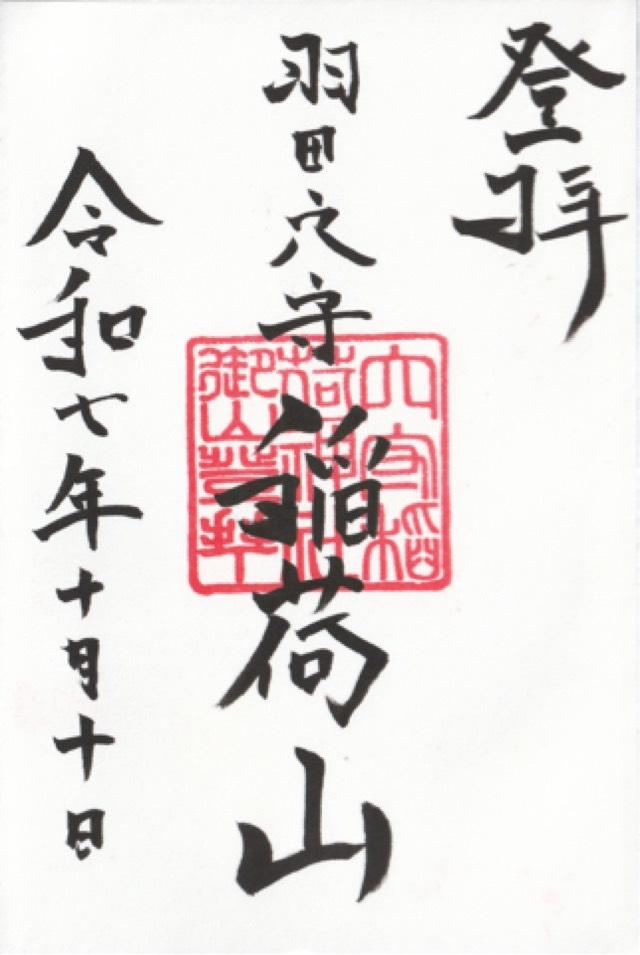 登拝
羽田穴守
稲荷山
令和七年十月十日
穴守稲
荷神社
御山登拝